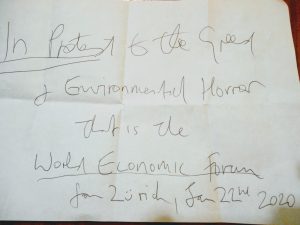 In Protest to the Greed
& Environmental Horror
that is the
World Economic Forum
Zürich, Jan 22nd 2020